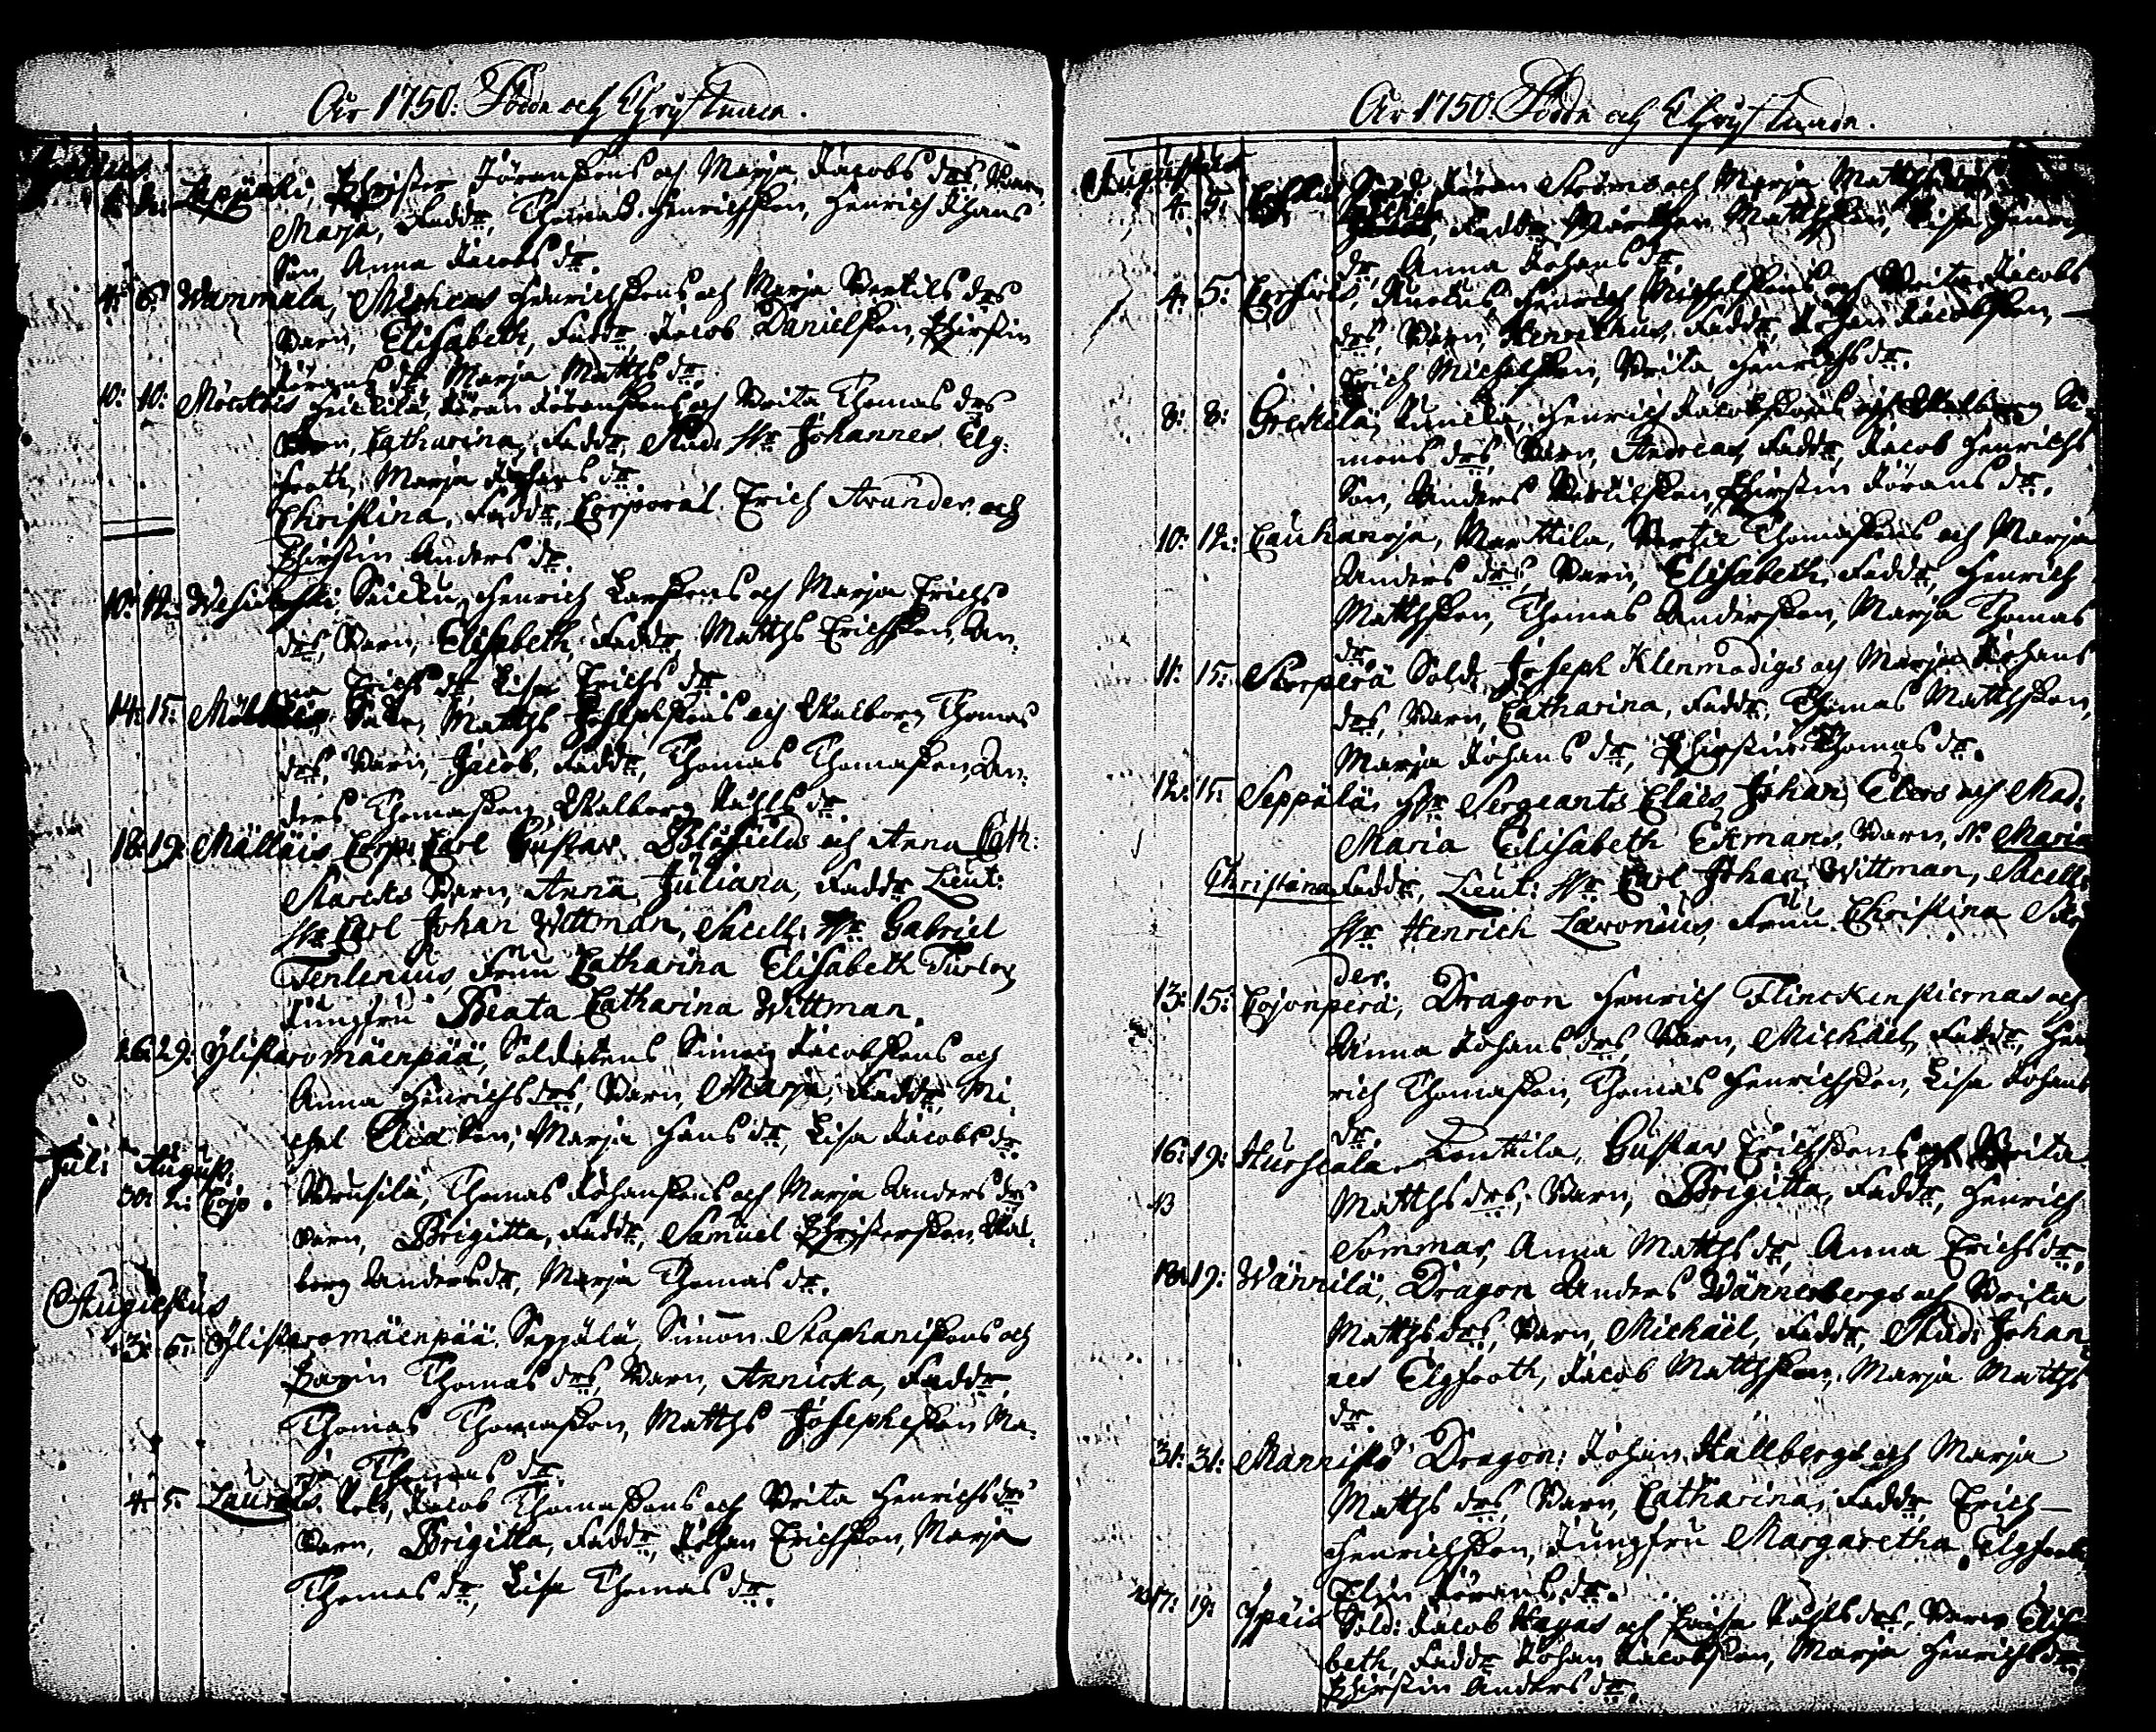 År 1750: Födde och Chrystnade.
Julius.
Christer Jöranssons och Marja Jacobs drs, Barn
Marja, Faddr, Thomas Henrichsson, Henrich Johans
Son, Anna Jacobs dr.
4: 6: Wammala, Michens Henrichssons och Marja Bertils drs
Barn, Elisabeth, Faddr, Jacob Danielsson, Chirstin
Jörans dr, Marja Matths dr.
10: 10: Jöran Jöranssons och Brita Thomas drs
Barn, Catharina, Faddr, Stud: Hr Johannes Elg-
footh, Marja Johans dr.
Christina, Faddr, Corporal Erich Strander och
Chirstin Anders dr.
10: 12: Henrich Larssons och Marja Erichs
drs, Barn, Elisabeth, Faddr, Matths Erichsson, An-
na Erichs dr, Lisa Erichs dr.
14: 15: Matths Josephssons och Walborg Thomas
drs, Barn, Jacob, Faddr, Thomas Thomasson, An-
ders Thomasson, Walborg dr.
18: 19: Mälläis Corp: Carl Gustav Blåfields och Anna Cath:
Starcks Barn, Anna Juliana, Faddr Lieut:
Hr Carl Johan Wittman, Sacell: Hr Gabriel
Fenlenius, Fruu Catharina Elisabeth
Jungfru Beata Catharina Wittman.
26: 29: Ylistaromäenpää, Soldatens Simon Jacobssons och
Anna Henrichs drs, Barn, Marja, Faddr, Mi-
chel Eliæson, Marja Hans dr, Lisa Jacobs dr.
Juli August.
30: 2: Cojo. Thomas Johanssons och Marja Anders drs
Barn, Brigitta, Faddr, Samuel Christersson, Wal-
borg Anders dr, Marja Thomas dr.
Augustus
3: 5: Ylistaromäenpää, Seppälä, Simon Stephanssons och
Carin Thomas drs, Barn, Annicka, Faddr,
Thomas Thomasson, Matths Josephsson, Ma-
rja Thomas dr.
4: 5: Jacob Thomassons och Brita Henrichs drs
Barn, Brigitta, Faddr, Johan Erichsson, Marja
Thomas dr, Lisa Thomas dr.
År 1750: Födde och Chrystnade.
Augustus
4: 5: Sold: Jöran Ströms och Marja Matths drs
Faddr Mårthen Matthsson, Lisa Henrichs
dr, Anna Johans dr
4: 5: Henrich Michelssons och Brita Jacobs
drs, Barn, Henrichus, Faddr, Johan Jacobsson,
Erich Michelsson, Brita Henrichs dr.
8: 8: Greckilä, Henrich Jacobssons och Walborg Si-
mons drs, Barn, Andreas, Faddr, Jacob Henrichs
Son, Anders Bertilsson, Chirstin Jörans dr.
10: 12: Cauhanoja, Marttila, Bertil Thomassons och Marja
Anders drs, Barn, Elisabeth, Faddr, Henrich
Matthsson, Thomas Andersson, Marja Thomas
dr
11: 15: Korperä Sold: Joseph Klenmodigs och Marja Johans
drs, Barn, Catharina, Faddr, Thomas Matthsson,
Marja Johans dr, Chirstin Thomas dr.
12: 15: Seppälä, Hr Sergeants Claës Johan Elers och Mad:
Maria Elisabeth Ekmans, Barn, N: Maria
Christina Faddr, Lieut: Hr Carl Johan Wittman, Sacell:
Hr Henrich Laxonius, Fruu Christina
der.
13: 15: Cojonperä, Dragon Henrich Flinckenstiernas och
Anna Johans drs, Barn, Michäel, Faddr, Hen
rich Thomasson, Thomas Henrichsson, Lisa Johans
dr.
16: 19: Hurskala Conttila, Gustav Erichssons och Brita
Matths drs, Barn, Brigitta, Faddr, Henrich
Sommar, Anna Matths dr, Anna Erichs dr,
18: 19: Wännilä, Dragon Anders Wännerbergs och Brita
Matths drs, Barn, Michäel, Faddr, Stud: Johan
nes Elgfooth, Jacob Matthsson, Marja Matths
dr.
31: 31: Mannistö Dragon: Johan Hallbergs och Marja
Matths drs, Barn, Catharina, Faddr, Erich
Henrichsson, Jungfru Margaretha Elgfooth
Elin Jörans dr.
17: 19: Ypäis Sold: Jacob Hagas och drs, Barn Elisa-
beth, Faddr Johan Jacobsson, Marja Henrichs dr,
Chirstin Anders dr.